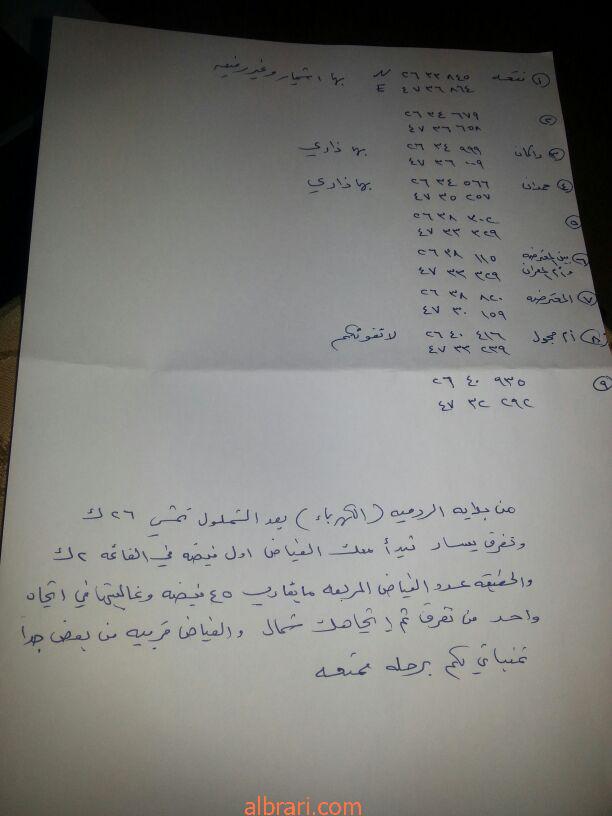 ① نتعه N ٢٦ ٣٣ ٨٤٥ بها اشجار وغير رفيعه
E ٤٧ ٣٦ ٨٦٤
② ٢٦ ٣٤ ٦٧٩
٤٧ ٣٦ ٦٥٨
③ داكان ٢٦ ٣٤ ٩٩٩ بها ذاري
٤٧ ٣٦ ٠٠٩
④ حمدان ٢٦ ٣٤ ٥٦٦ بها ذاري
٤٧ ٣٥ ٢٥٧
⑤ ٢٦ ٣٨ ٣٠٢
٤٧ ٣٣ ٣٢٩
⑥ بين المعترضه ٢٦ ٣٨ ١١٥
وام العران ٤٧ ٣٣ ٣٢٩
⑦ المعترضه ٢٦ ٣٨ ٨٢٠
٤٧ ٣٠ ١٥٩
⑧ ام مجول ٢٦ ٤٠ ٤١٦ لا تفوتكم
٤٧ ٣٣ ٢٣٩
⑨ ٢٦ ٤٠ ٩٣٥
٤٧ ٣٢ ٢٩٢
من بدايه الردميه (الكهرباء) بعد الشملول تمشي ٢٦ ك
وتفرق يسار تبدأ معك الفياض اول فيضه في القائمه ٢ ك
والحقيقه عدد الفياض المربعه ما يقارب ٤٥ فيضه وغالبيتها في اتجاه
واحد من تفرق ثم اتجاهك شمال والفياض قريبه من بعض جداً
تمنياتي لكم برحله ممتعه
albrari.com